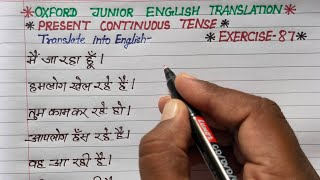 *OXFORD JUNIOR ENGLISH TRANSLATION
*PRESENT CONTINUOUS TENSE*
Translate into English- *EXERCISE-87*
मैं जा रहा हूँ।
हमलोग खेल रहे हैं।
तुम काम कर रहे हो।
आपलोग हँस रहे हैं।
वह आ रही है।